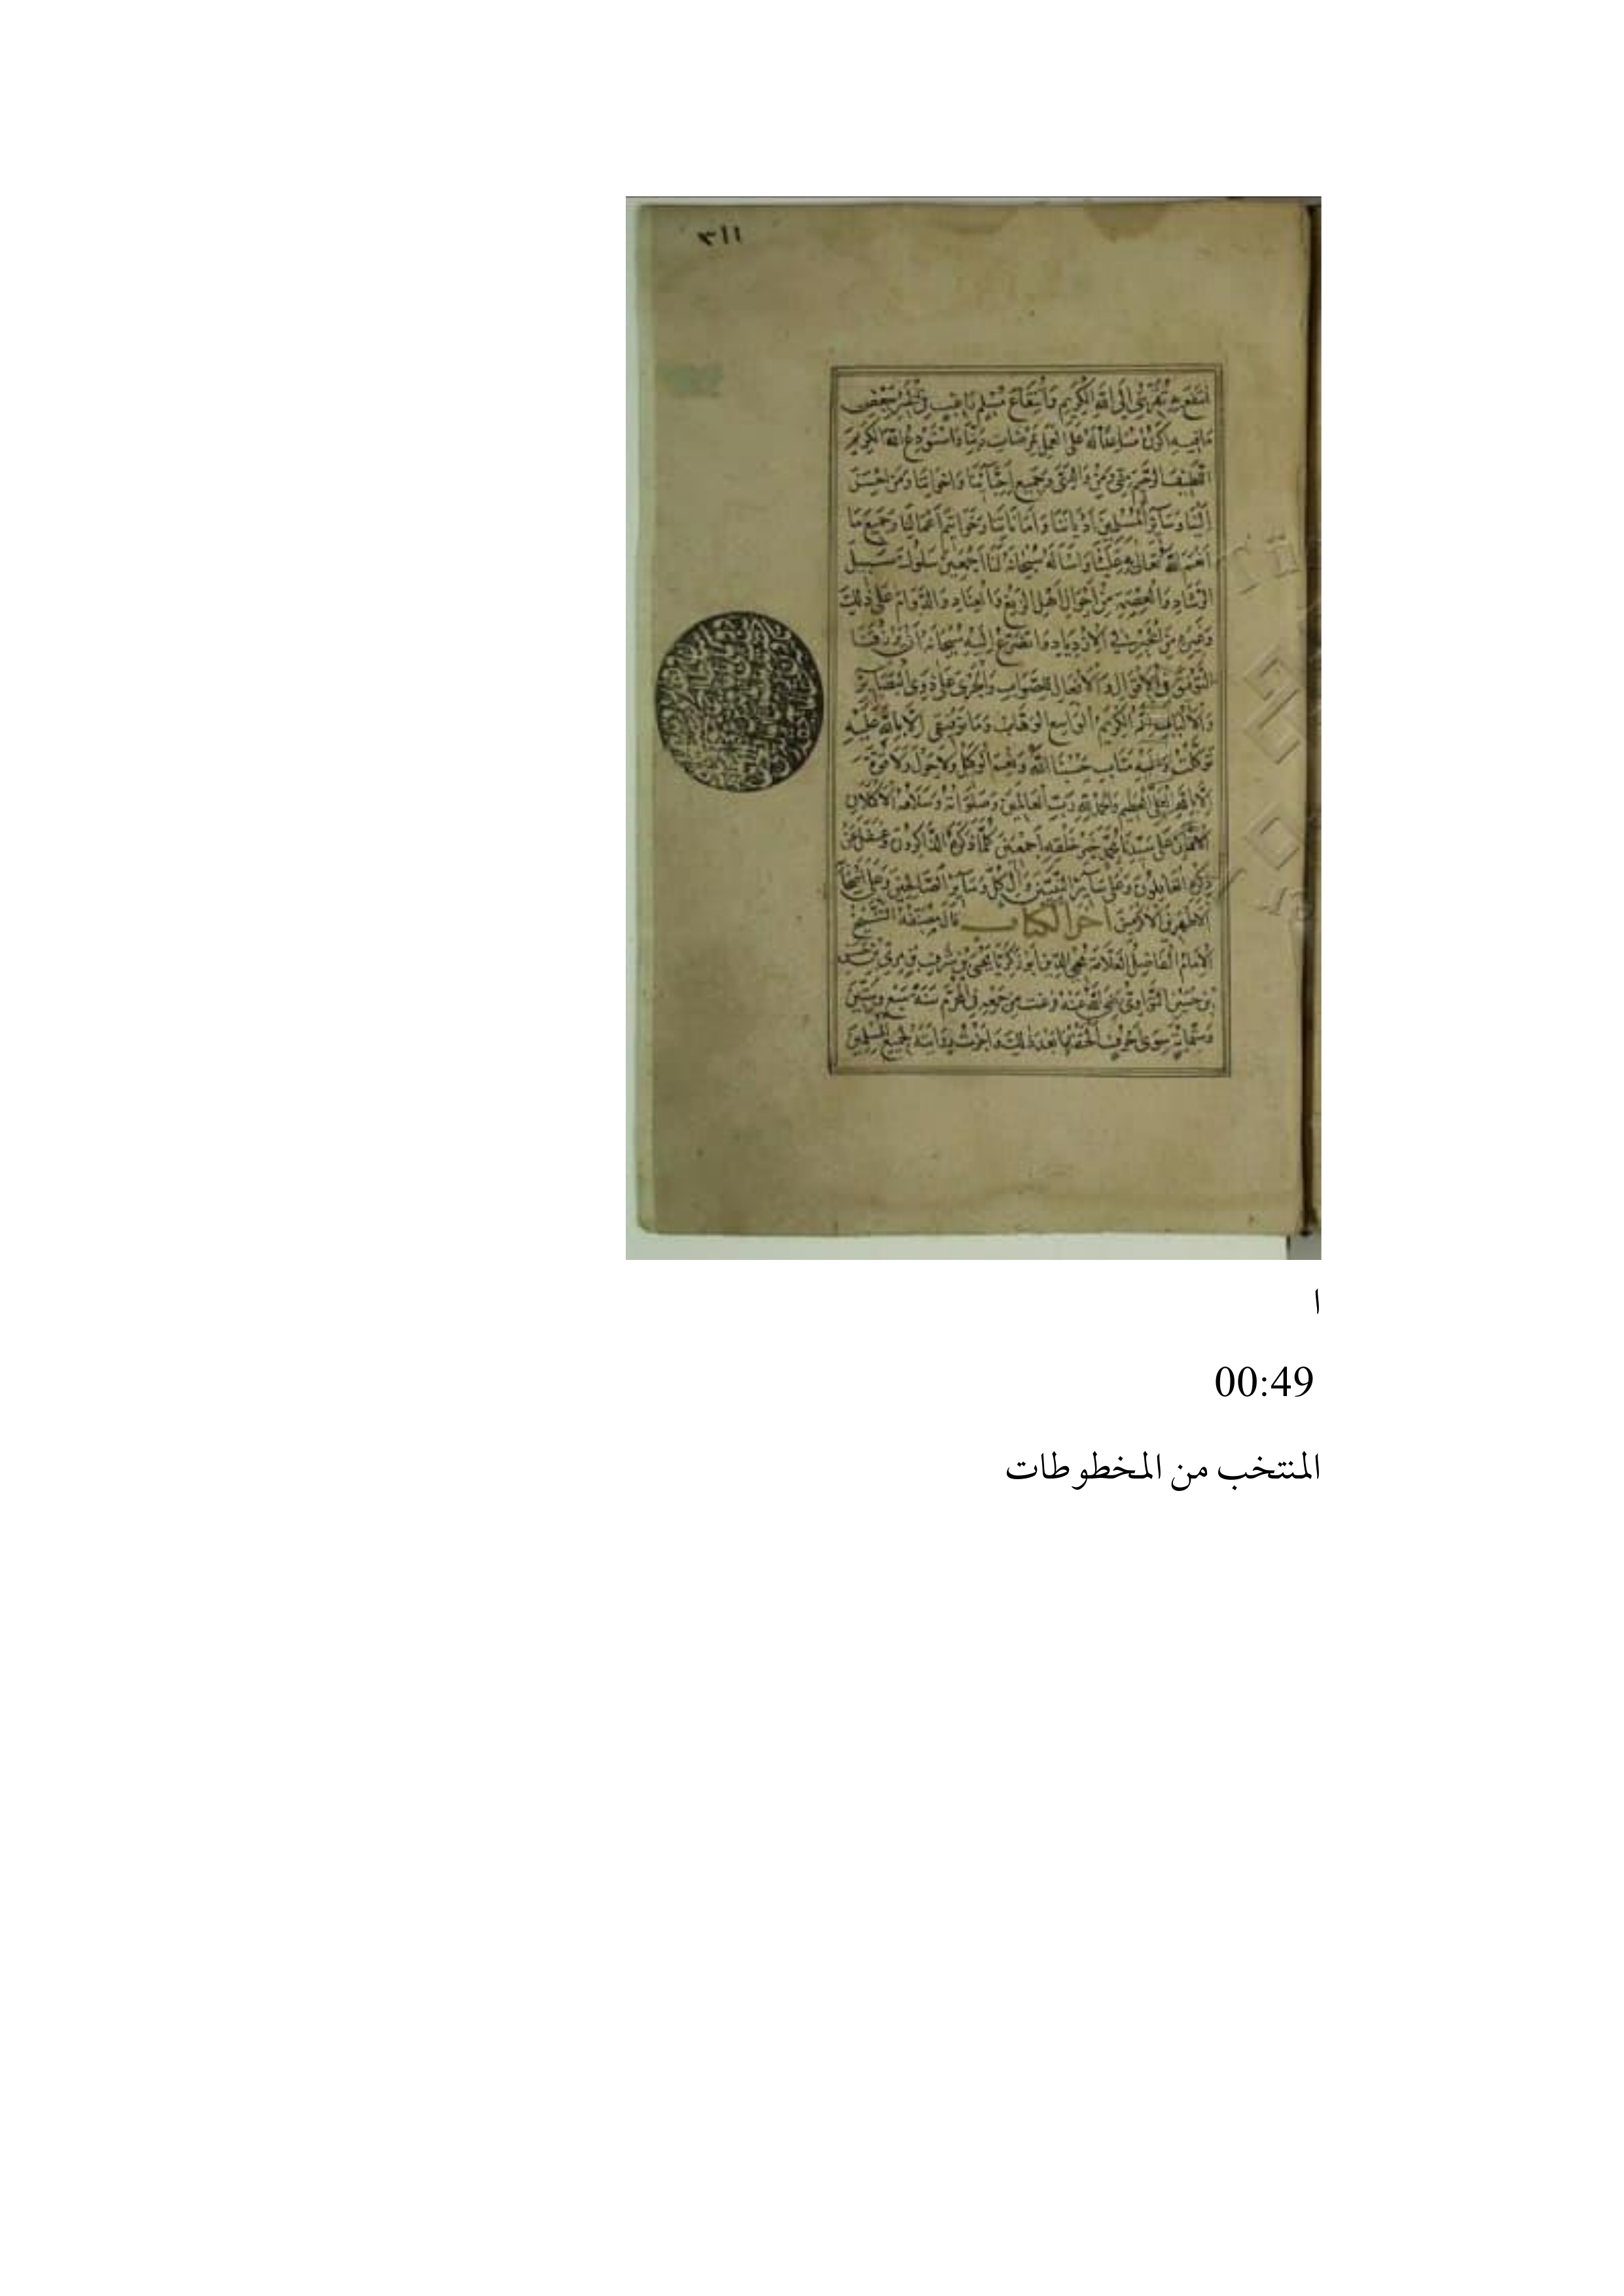 ٣١١
انتفع به تقربني الى الله الكريم وانتفاع مسلم راغب في الخير ببعض
ما فيه اكون مساعدا له على العمل بمرضات ربنا واستودع الله الكريم
اللطيف الرحيم مني ومن والدي وجميع احبابنا واخواننا ومن احسن
الينا وسائر المسلمين ادياننا واماناتنا وخواتيم اعمالنا وجميع ما
انعم الله تعالى به علينا واساله سبحانه لنا اجمعين سلوك سبيل
الرشاد والعصمة من احوال اهل الزيغ والعناد والدوام على ذلك
وغيره من الخير في الازدياد واتضرع اليه سبحانه ان يرزقنا
التوفيق في الاقوال والافعال للصواب والجري على ذوي البصائر
والالباب انه الكريم الواسع الوهاب وما توفيقي الا بالله عليه
توكلت واليه متاب حسبنا الله ونعم الوكيل ولا حول ولا قوة
الا بالله العلي العظيم والحمد لله رب العالمين وصلواته وسلامه الاكملان
الاتمان على سيدنا محمد خير خلقه اجمعين كلما ذكره الذاكرون وغفل عن
ذكره الغافلون وعلى سائر النبيين وآل كل وسائر الصالحين وعلى
الاطهرين الاكرمين اخر الكتاب قال مصنفه الشيخ
الامام الفاضل العلامة محيي الدين ابو زكريا يحيى بن شرف بن مري بن حسن
بن حسين النواوي رضي الله عنه فرغت من جمعه في المحرم سنة سبع وستين
وستماية سوى احرف الحقتها بعد ذلك واجزت روايته لجميع المسلمين
ا
00:49
المنتخب من المخطوطات